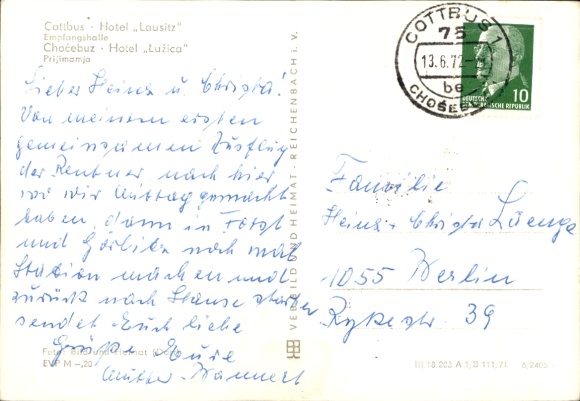 Cottbus · Hotel „Lausitz"
Empfangshalle
Choćebuz · Hotel „Łužica"
Prijimamja
Lieber Heinz u. Christa!
Von meinem ersten
gemeinsamen Ausflug
der Rentner nach hier
wo wir Mittag gemacht
haben, dann in Forst
und Görlitz noch mal
Station machen und
zurück nach Hause
sendet Euch liebe
Grüße Eure
Mutter
Foto: Bild und Heimat
EVP M –,20
VERLAG BILD UND HEIMAT · REICHENBACH i. V.
COTTBUS 1
75
13.6.72
be
CHOŚEBUZ
DEUTSCHE
DEMOKRATISCHE REPUBLIK
10
Familie
Heinz - Christa
1055 Berlin
Rykestr. 39
III 18 203 A 1 B 111.71